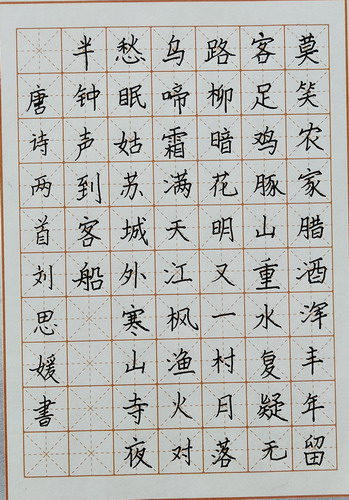 莫笑农家腊酒浑丰年留
客足鸡豚山重水复疑无
路柳暗花明又一村月落
乌啼霜满天江枫渔火对
愁眠姑苏城外寒山寺夜
半钟声到客船
唐诗两首刘思媛書